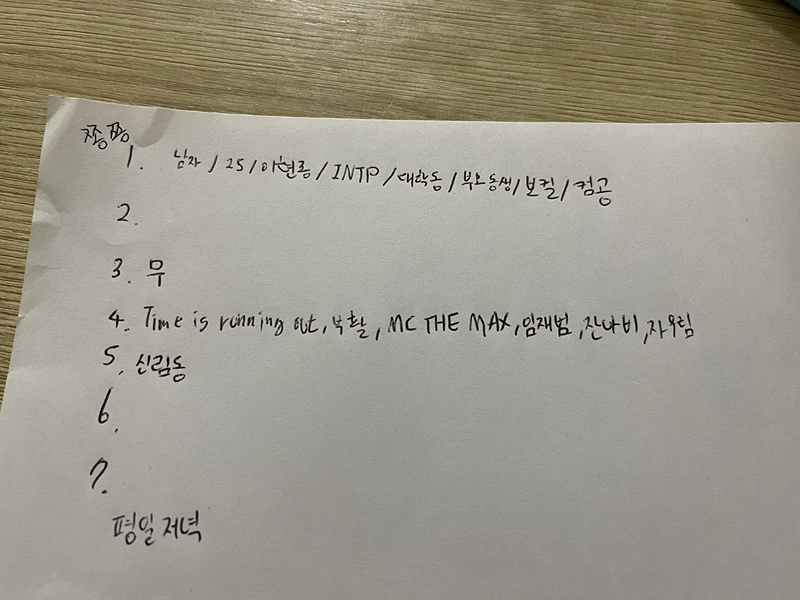 쫑쫑
1. 남자 / 25 / 이현종 / INTP / 대학동 / 부모동생 / 보컬 / 컴공
2.
3. 무
4. Time is running out, 부활, MC THE MAX, 임재범, 잔나비, 자우림
5. 신림동
6.
7.
평일 저녁